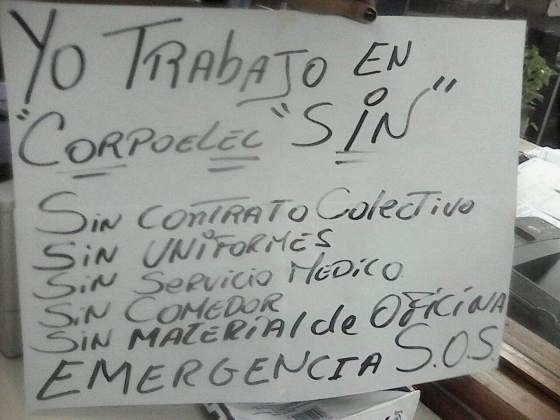 Yo TRAbAJO EN
"CORPOELEC "SiN"
SiN CONTRATO ColecTivo
SiN UNiFORMES
SiN SERVicio MEDICO.
SiN COMEDOR
SiN MATERIAl de OFiCiNA
EMERGENCIA S.O.S.